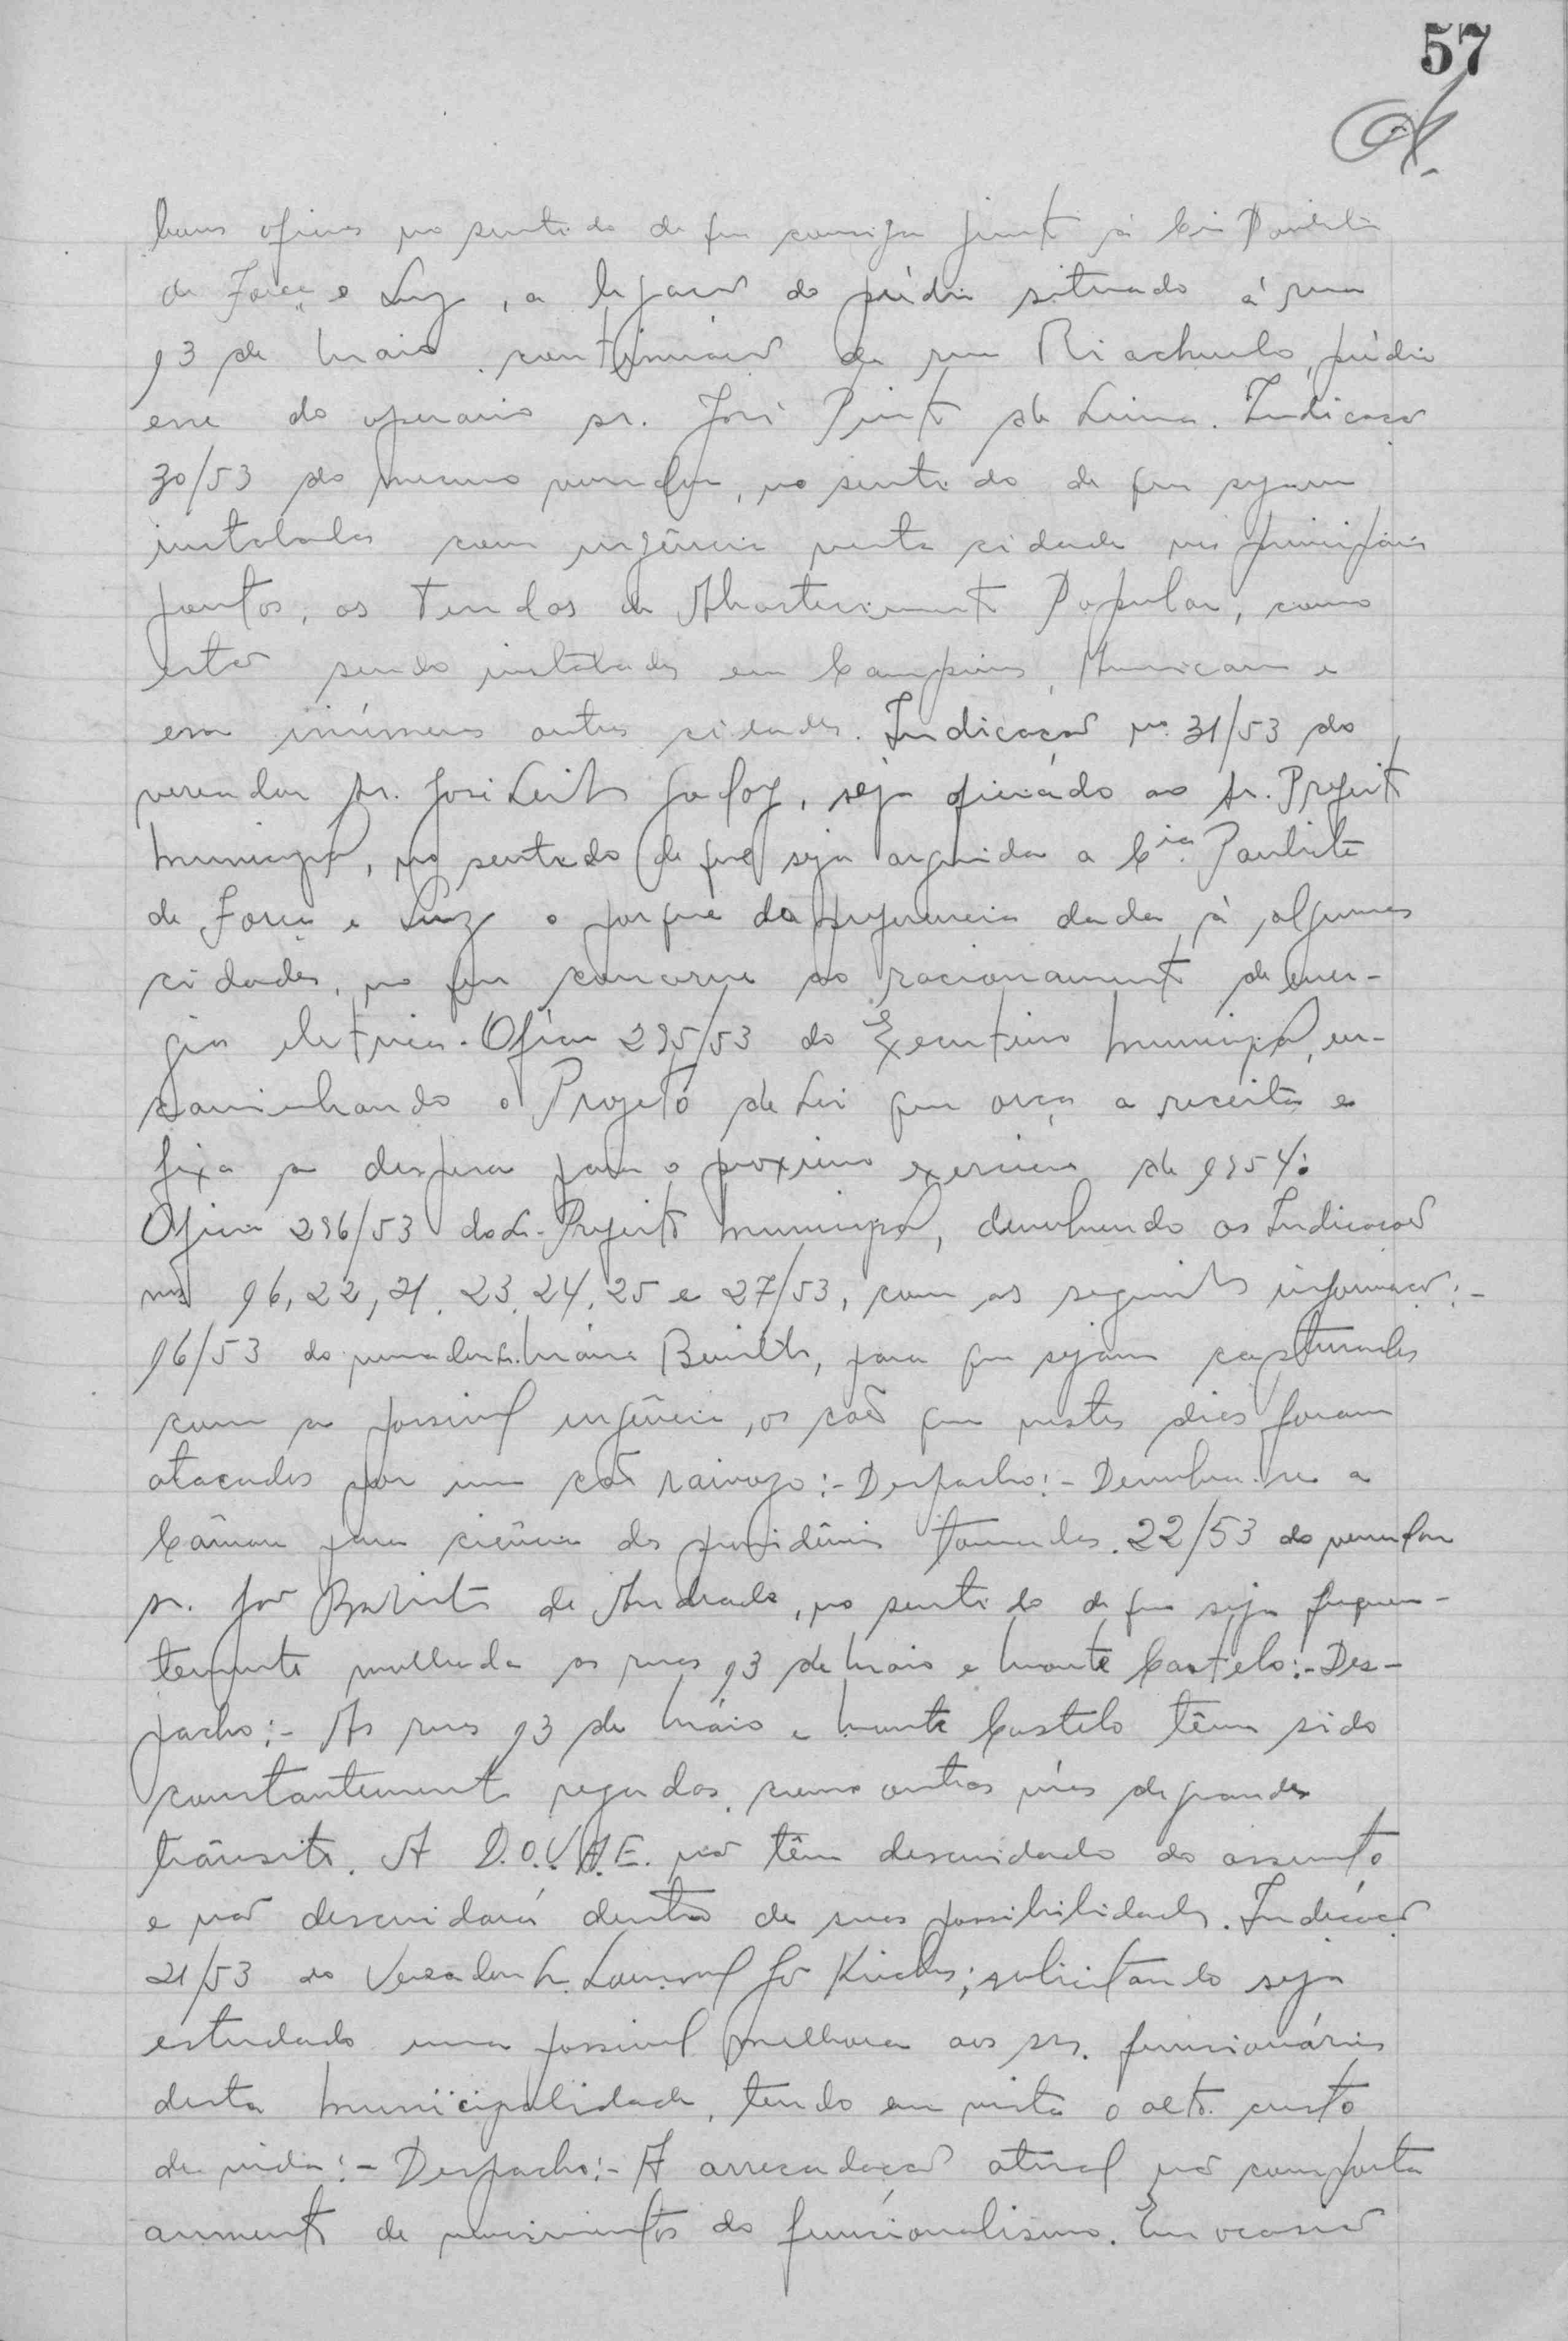 57
bons oficios no sentido de que consiga junto á Cia Paulista
de Força e Luz, a ligação do prédio situado á rua
13 de Maio, continuação da rua Riachuelo, prédio
esse do operario sr. José Pinto de Lima. Indicação
30/53 do mesmo vereador, no sentido de que sejam
instaladas com urgência nesta cidade nos principais
pontos, as Tendas de Abastecimento Popular, como
estão sendo instaladas em Campinas, Americana e
em inúmeras outras cidades. Indicação nº 31/53 do
vereador sr. José Leite Godoy, seja oficiado ao sr. Prefeito
Municipal, no sentido de que seja arguida a Cia. Paulista
de Força e Luz o porque da preferencia dada à algumas
cidades, no que concerne ao racionamento de ener-
gia eletrica. Oficio 295/53 do Executivo Municipal, en-
caminhando o Projeto de Lei que orça a receita e
fixa a despesa para o proximo exercicio de 1954.
Oficio 296/53 do Sr. Prefeito Municipal, devolvendo as Indicações
nos 16, 22, 21, 23, 24, 25 e 27/53, com as seguintes informações:-
16/53 do vereador sr. Mário , para que sejam capturados
com a possivel urgência, os cães que nestes dias foram
atacados por um cão raivozo:- Despacho:- Devolva-se a
Câmara para ciência das providências tomadas. 22/53 do vereador
sr. João Batista de Andrade, no sentido de que seja frequen-
temente molhada as ruas 13 de Maio e Monte Castelo:- Des-
pacho:- As ruas 13 de Máio e Monte Castelo têm sido
constantemente regadas, como outras vias de grandes
trânsito. A D.O.V.A.E. não têm descuidado do assunto
e não descuidará dentro de suas possibilidades. Indicação
21/53 do Vereador Sr. Lourival ; solicitando seja
estudado uma possivel melhora aos srs. funcionários
desta Municipalidade, tendo em vista o alto custo
de vida:- Despacho:- A arrecadação atual não comporta
aumento de vencimentos do funcionalismo. Em ocasião